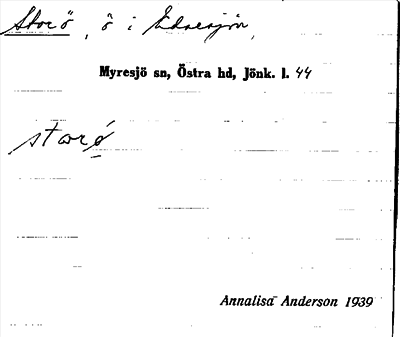 Storö, ö i
Myresjö sn, Östra hd, Jönk. l. 44
storö
Annalisa Anderson 1939